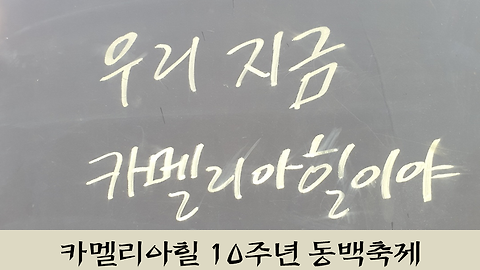 우리 지금
카멜리아힐이야
카멜리아힐 10주년 동백축제